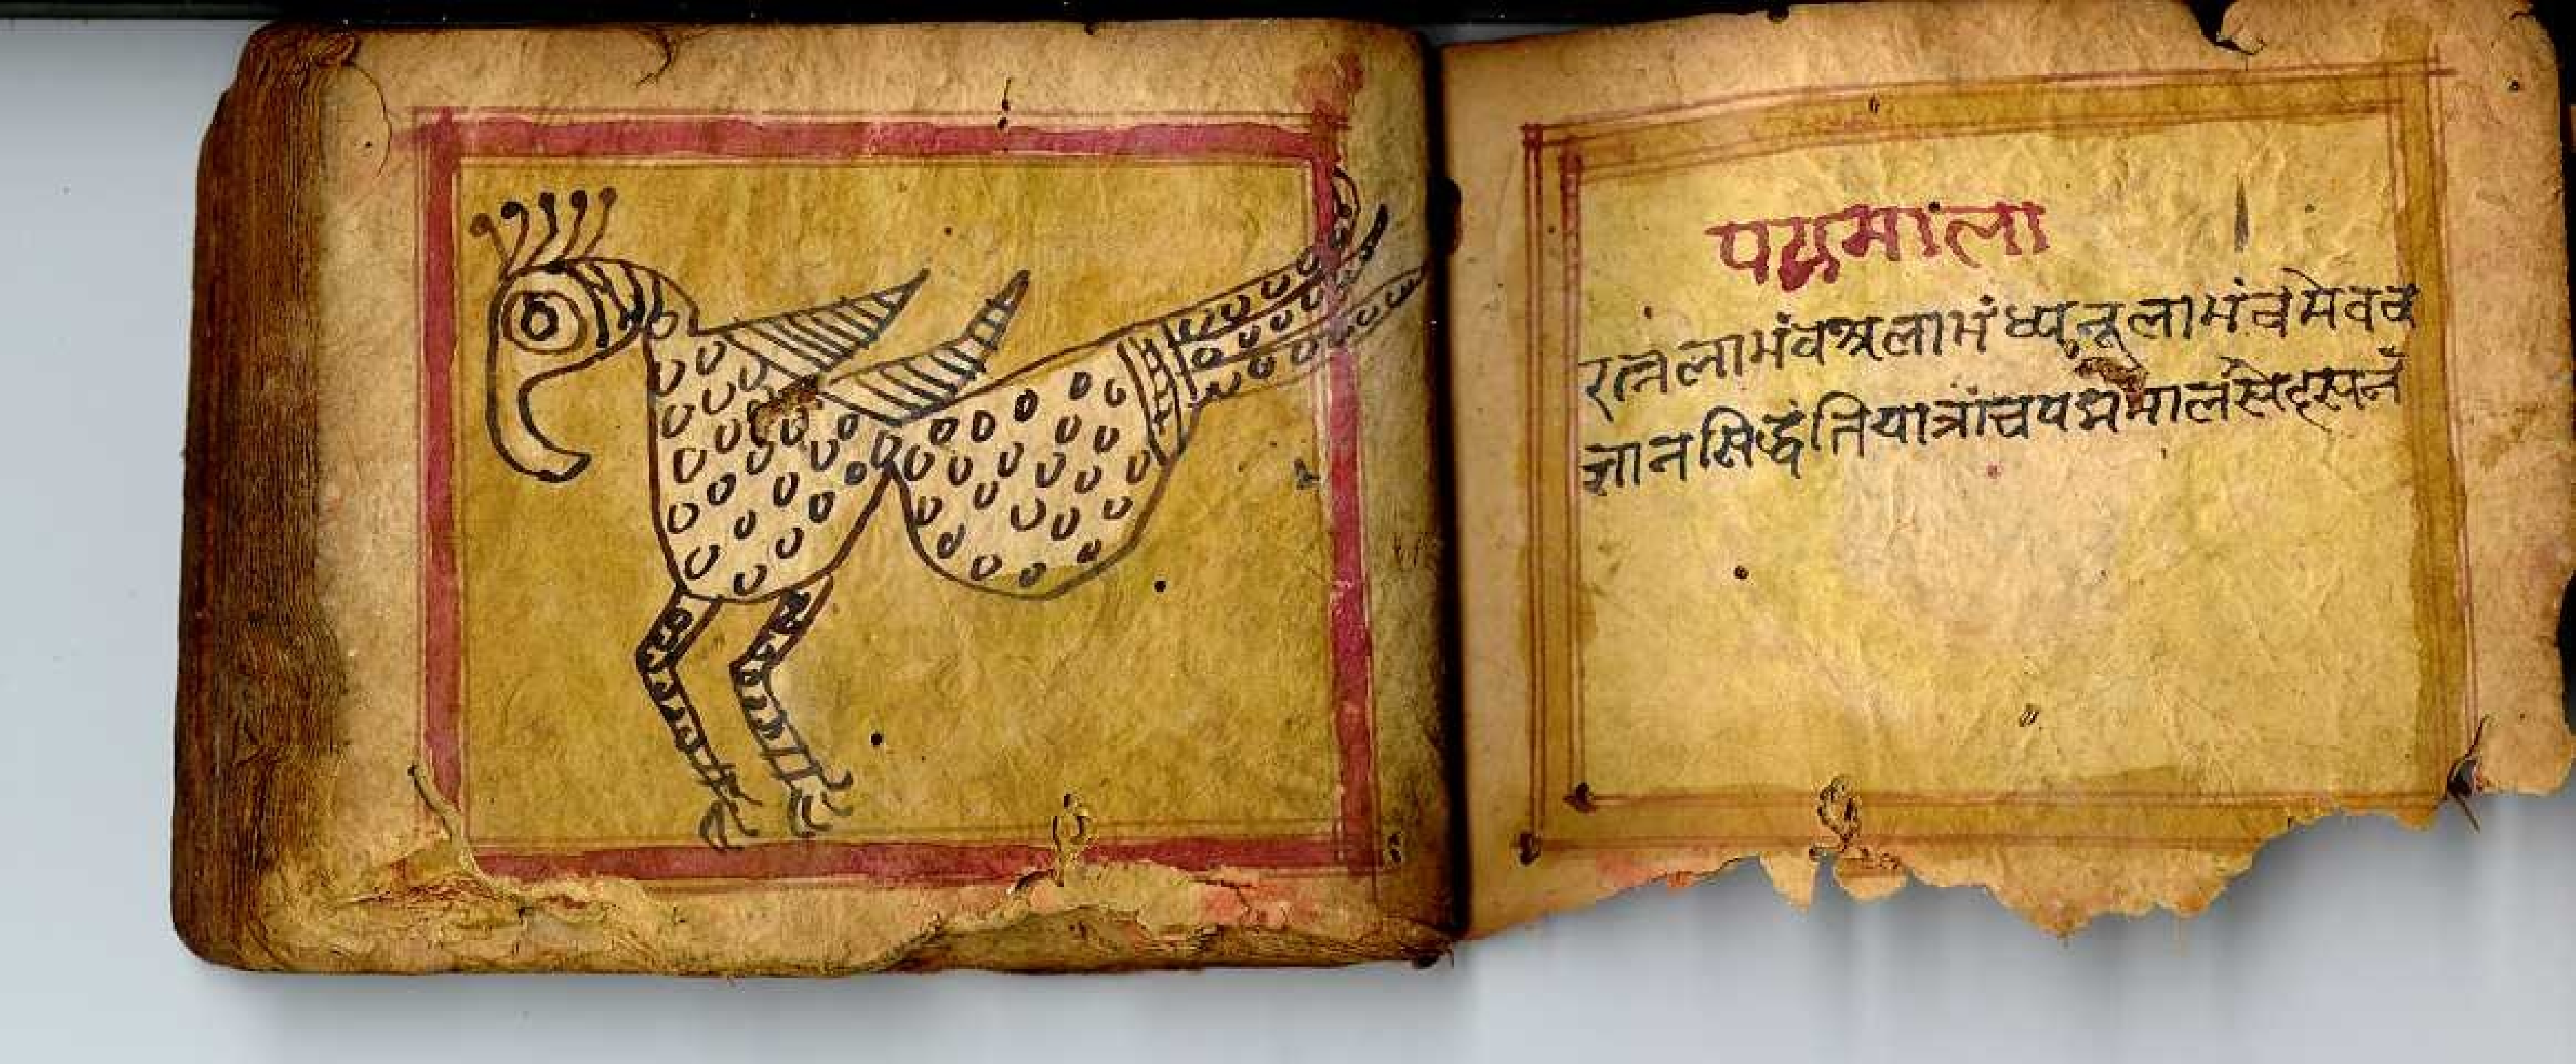 पद्ममाला ।
रत्नलाभंवस्त्रलाभंध्यनूलाभंवमेवव
ज्ञानसिद्धंतियात्रांचपद्ममालंस्वे